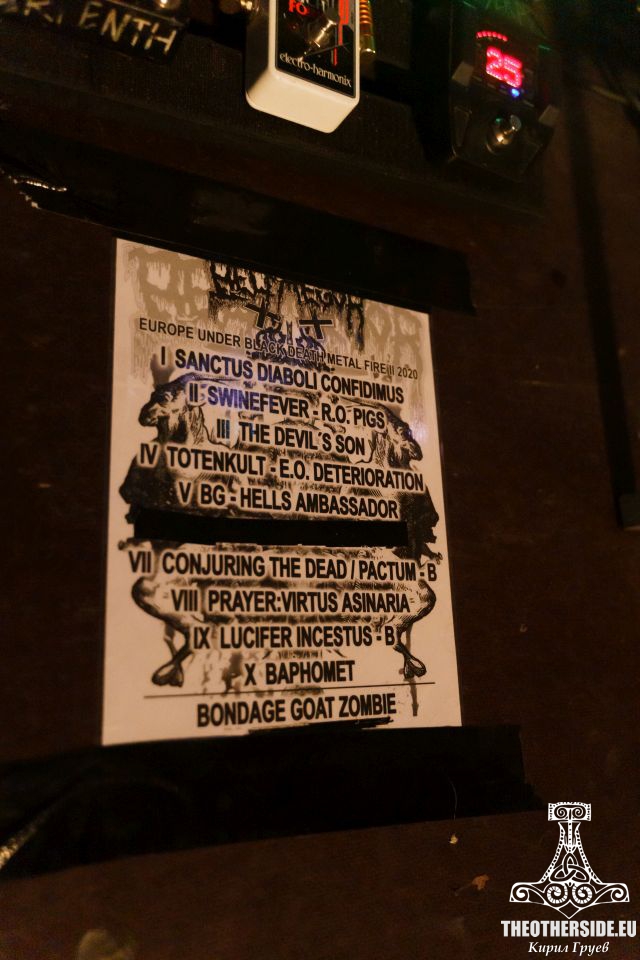 ARI ENTH
FO
electro-harmonix
25
BELPHEGOR
EUROPE UNDER BLACK DEATH METAL FIRE II 2020
I SANCTUS DIABOLI CONFIDIMUS
II SWINEFEVER - R.O. PIGS
III THE DEVIL´S SON
IV TOTENKULT - E.O. DETERIORATION
V BG - HELLS AMBASSADOR
VII CONJURING THE DEAD / PACTUM - B
VIII PRAYER:VIRTUS ASINARIA
IX LUCIFER INCESTUS - B
X BAPHOMET
BONDAGE GOAT ZOMBIE
THEOTHERSIDE.EU
Кирил Груев